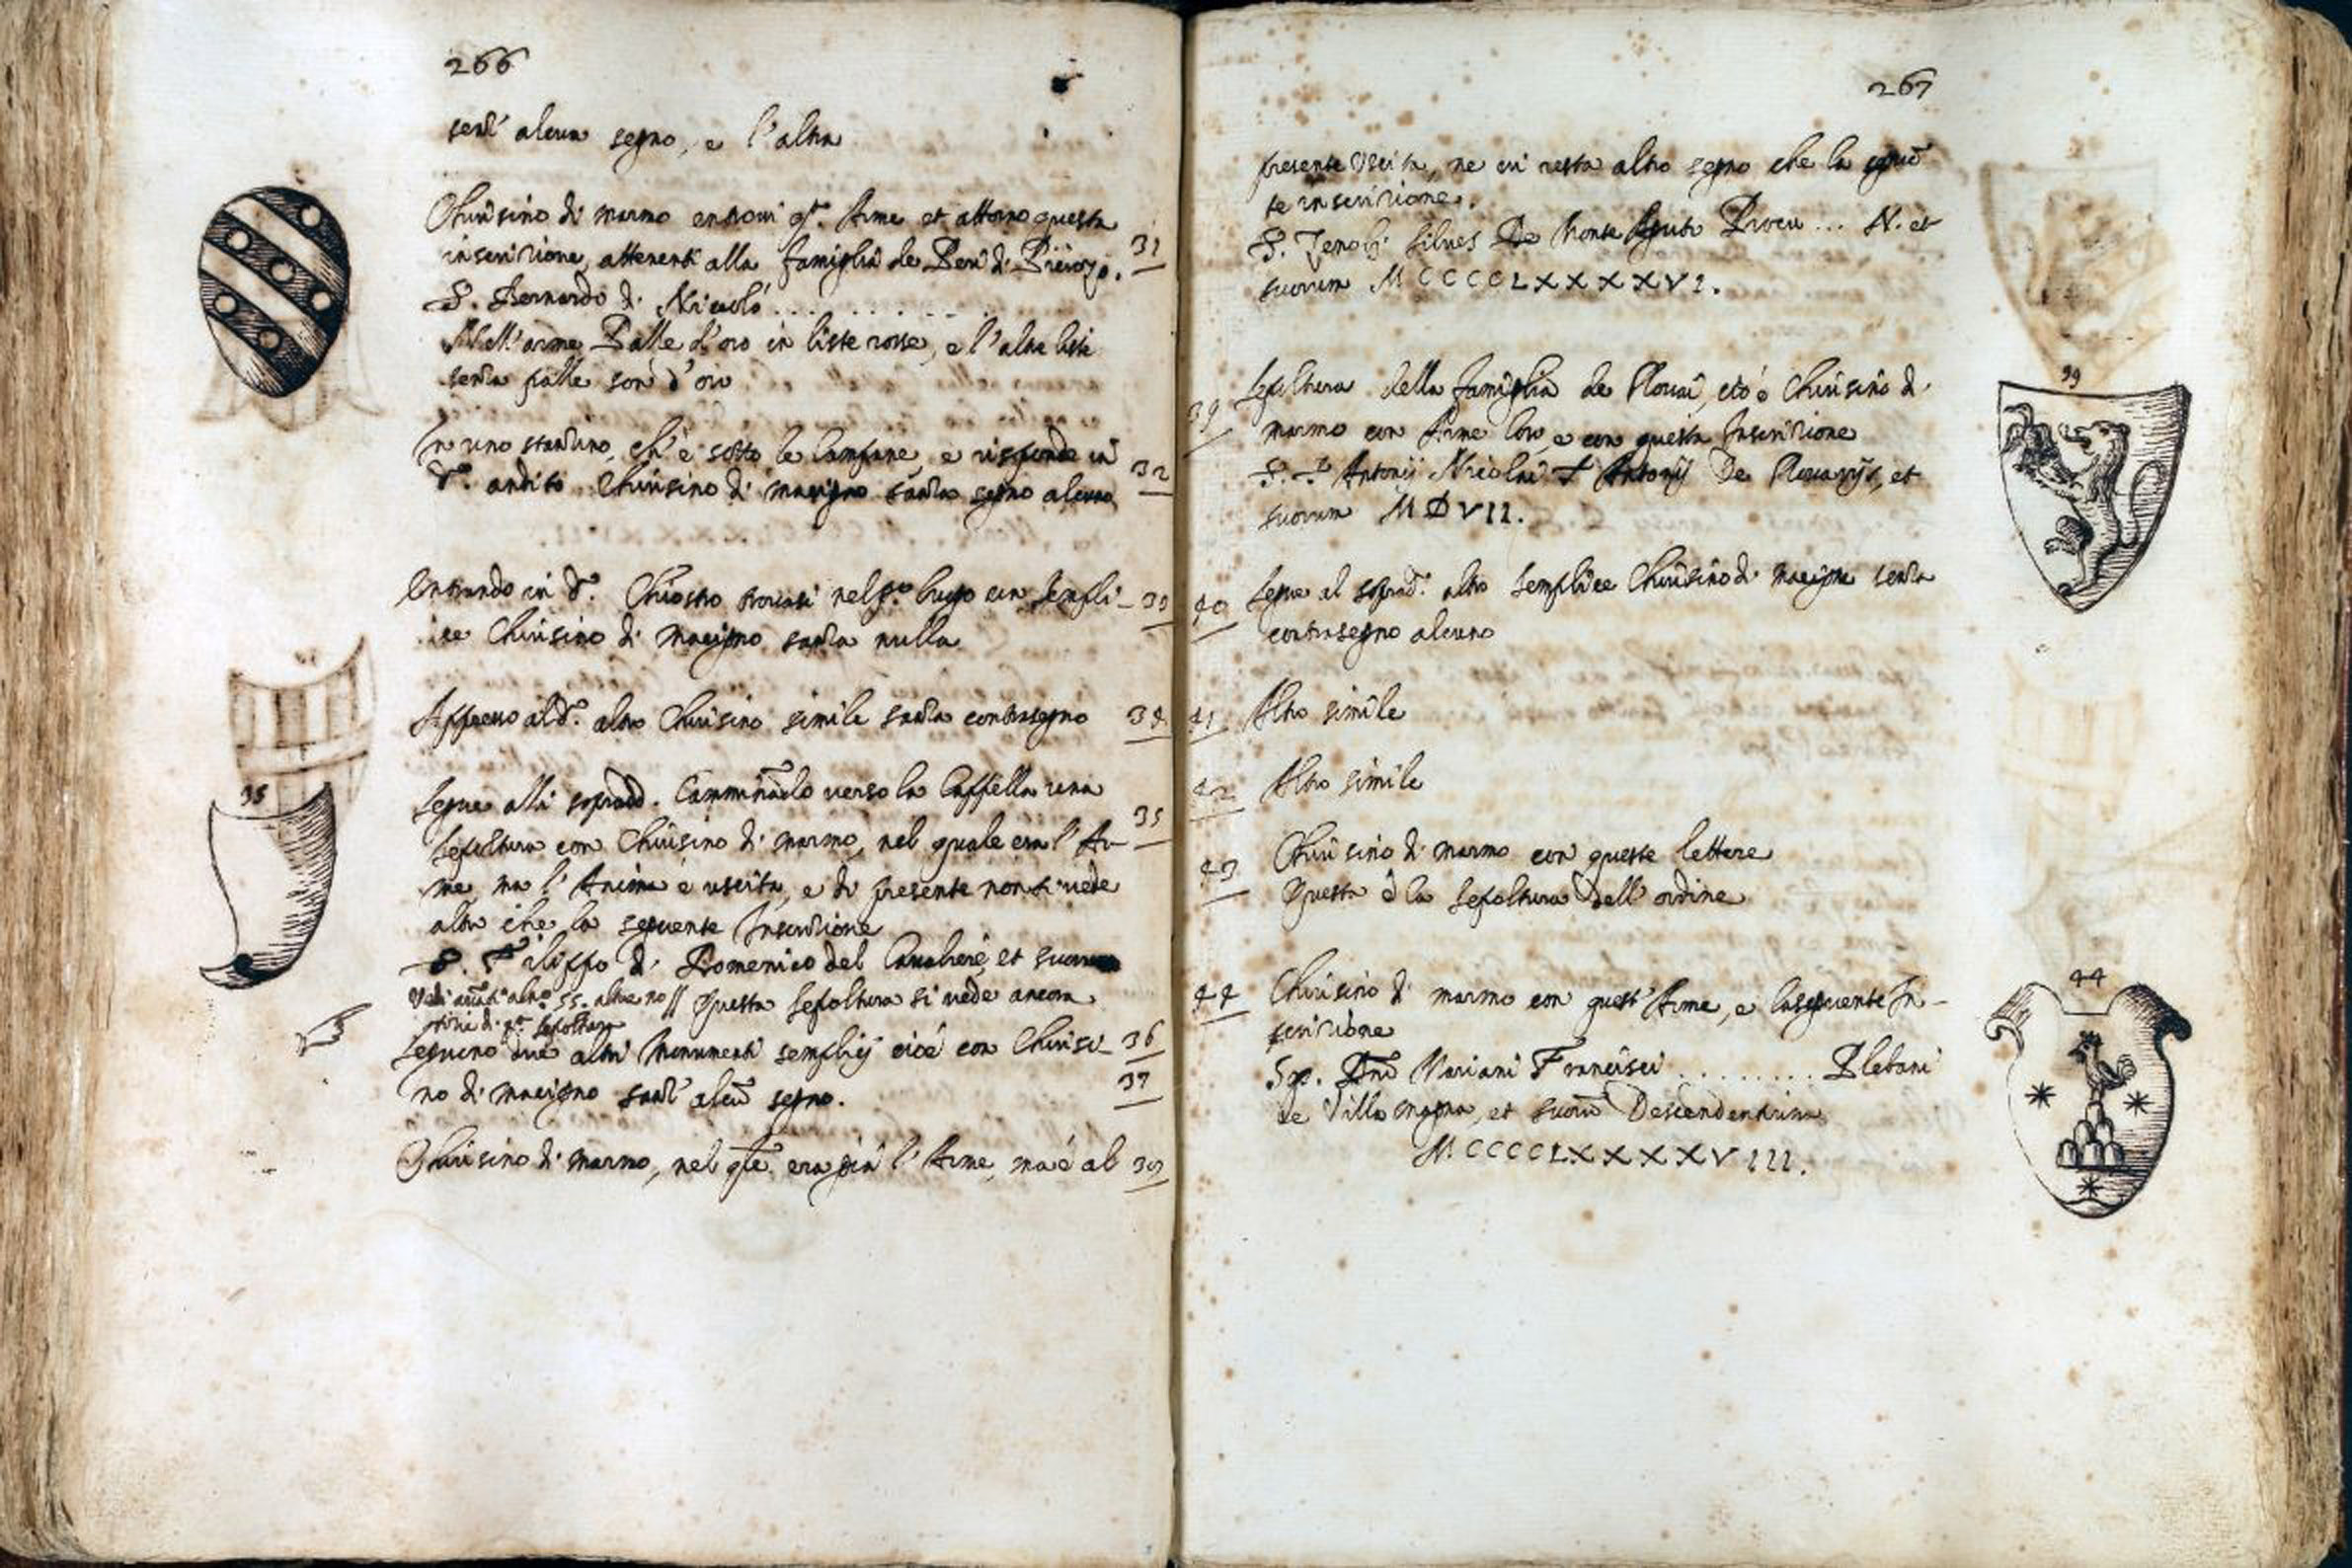 266
senz' alcun segno, e l'altra
Chiusino di marmo entrovi qta. Arme et attorno questa
inscrizione, attenenti alla famiglia de 31
S. Bernardo di Niccolò . . . . . . . . .
Nell'arme Palle d'oro in liste rosse, e l'altre liste
senza palle son d'oro
In uno stanzino, ch'è sotto le Campane, e risponde in 32
do. andito Chiusino di macigno senza segno alcuno
Entrando in do. Chiostro trovasi nel po. luogo un sempli- 33
ice Chiusino di Macigno senza nulla
Appresso al do. altro Chiusino simile senza contrasegno 34
35
Segue alli sopradd. Camminando verso la Cappella una 35
sepoltura con Chiusino di marmo, nel quale era l'Ar-
me, ma l'Anima è uscita, e di presente non si vede
altro che la seguente Inscrizione
S. Filippo di Domenico del Cavaliere, et suorum
Vedi al no. 55. altre no // Questa sepoltura si vede ancora
tizie di qta. sepoltura
Seguono due altri Monumenti semplicj cioè con Chiusi- 36
no di macigno senz' alcun segno. 37
Chiusino di marmo, nel qle. era già l'Arme, ma è al 38
267
presente uscita, ne vi resta altro segno che la seguen
te inscrizione.
S. Zenobj Silves De Monte . . . N. et
suorum MCCCCLXXXXVI.
39
39 Sepoltura della famiglia de Plovai, cioè Chiusino di
marmo con Arme loro, e con questa Inscrizione
S. Antonij Nicolai Antonij De Plovarijs, et
suorum MDVII.
40 Segue al soprad. altro semplice Chiusino di Macigno senza
contrasegno alcuno
41 Altro simile
42 Altro simile
43 Chiusino di marmo con queste lettere
Questa è la sepoltura dell'ordine
44
44 Chiusino di marmo con quest'Arme, e la seguente In-
scrizione
Sep. Dni Mariani Francisci . . . . . . . . Plebani
de Villa magna, et suorum Descendentium
MCCCCLXXXXVIII.